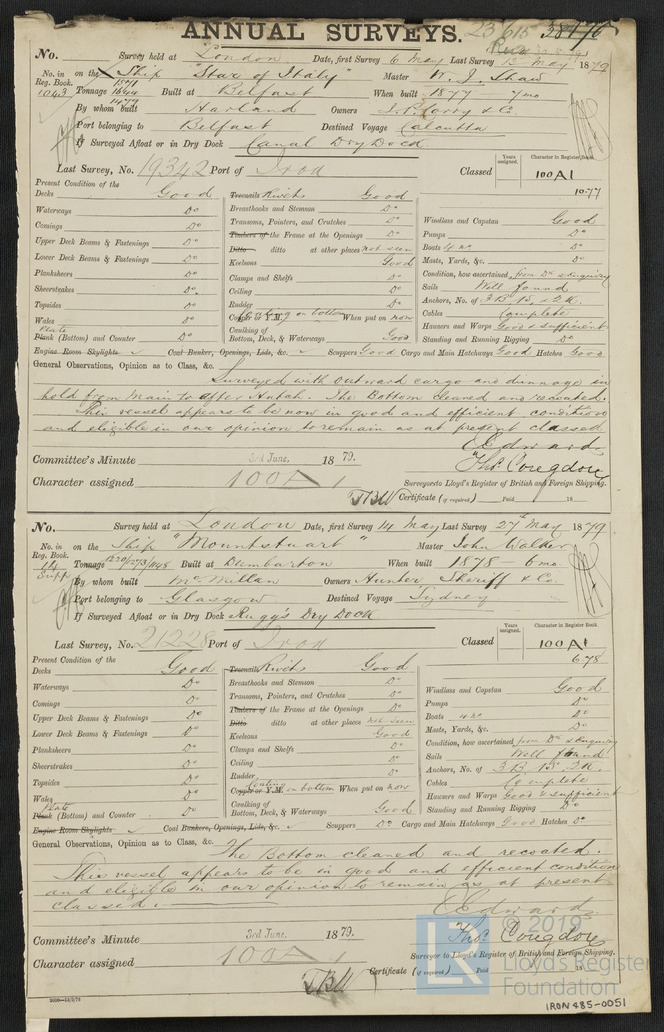 ANNUAL SURVEYS. 23615 38776
No. Survey held at London Date, first Survey 6 May Last Survey 13 May 1879
No. in Reg. Book. on the Ship "Star of Italy" Master W. J. Shaw
1043 Tonnage 1571 1644 1479 Built at Belfast When built 1877 7mo
By whom built Harland Owners J. P. Corry & Co.
Port belonging to Belfast Destined Voyage Calcutta
If Surveyed Afloat or in Dry Dock Canal Dry Dock
Last Survey, No. 19342 Port of Iron Classed Years assigned. Character in Register Book. 100A1
10.77
Present Condition of the
Decks Good
Waterways Do
Comings Do
Upper Deck Beams & Fastenings Do
Lower Deck Beams & Fastenings Do
Planksheers Do
Sheerstrakes Do
Topsides Do
Wales Do
Plate
Plank (Bottom) and Counter Do
Treenails Rivets Good
Breasthooks and Stemson Do
Transoms, Pointers, and Crutches Do
Timbers of the Frame at the Openings Do
Ditto ditto at other places not seen
Keelsons Good
Clamps and Shelfs Do
Ceiling Do
Rudder Do
Copper or Y.M. Coating on bottom When put on now
Caulking of
Bottom, Deck, & Waterways Good
Windlass and Capstan Good
Pumps Do
Boats 4 no. Do
Masts, Yards, &c. Do
Condition, how ascertained from Dk & Enquiry
Sails Well found
Anchors, No. of 3 B. 1 S. & 2 K.
Cables Complete
Hawsers and Warps Good & sufficient
Standing and Running Rigging Do
Engine Room Skylights Coal Bunker, Openings, Lids, &c. Scuppers Good Cargo and Main Hatchways Good Hatches Good
General Observations, Opinion as to Class, &c.
Surveyed with outward cargo and dunnage in
hold from Main to after Hatch. The Bottom cleaned and recoated.
This vessel appears to be now in good and efficient condition
and eligible in our opinion to remain as at present classed
Edward
Thos. Congdon
Committee's Minute 3rd June, 1879.
Surveyors to Lloyd's Register of British and Foreign Shipping.
Character assigned 100A1
Certificate (if required) Paid 18
No. Survey held at London Date, first Survey 14 May Last Survey 27th May 1879
No. in Reg. Book. on the Ship "Mountstuart" Master John Walker
14 Supp Tonnage 1220/1273/1148 Built at Dumbarton When built 1878 - 6 mo
By whom built McMillan Owners Hunter Sheriff & Co.
Port belonging to Glasgow Destined Voyage Sydney
If Surveyed Afloat or in Dry Dock Rugg's Dry Dock
Last Survey, No. 21228 Port of Iron Classed Years assigned. Character in Register Book. 100A1
6.78
Present Condition of the
Decks Good
Waterways Do
Comings Do
Upper Deck Beams & Fastenings Do
Lower Deck Beams & Fastenings Do
Planksheers Do
Sheerstrakes Do
Topsides Do
Wales Do
Plate
Plank (Bottom) and Counter Do
Treenails Rivets Good
Breasthooks and Stemson Do
Transoms, Pointers, and Crutches Do
Timbers of the Frame at the Openings Do
Ditto ditto at other places not seen
Keelsons Good
Clamps and Shelfs Do
Ceiling Do
Rudder Do
Copper or Y.M. Coating on bottom When put on now
Caulking of
Bottom, Deck, & Waterways Good
Windlass and Capstan Good
Pumps Do
Boats 4 no. Do
Masts, Yards, &c. Do
Condition, how ascertained from Dk & Enquiry
Sails Well found
Anchors, No. of 3 B. 1 S. 2 K.
Cables Complete
Hawsers and Warps Good & sufficient
Standing and Running Rigging Do
Engine Room Skylights Coal Bunkers, Openings, Lids, &c. Scuppers Do Cargo and Main Hatchways Good Hatches Do
General Observations, Opinion as to Class, &c. The Bottom cleaned and recoated.
This vessel appears to be in good and efficient condition
and eligible in our opinion to remain as at present
classed.
Edward
Thos. Congdon
Committee's Minute 3rd June, 1879.
Surveyor to Lloyd's Register of British and Foreign Shipping.
Character assigned 100A1
Certificate (if required) Paid 18
© 2019
LR Lloyd's Register
Foundation
IRON 885-0051